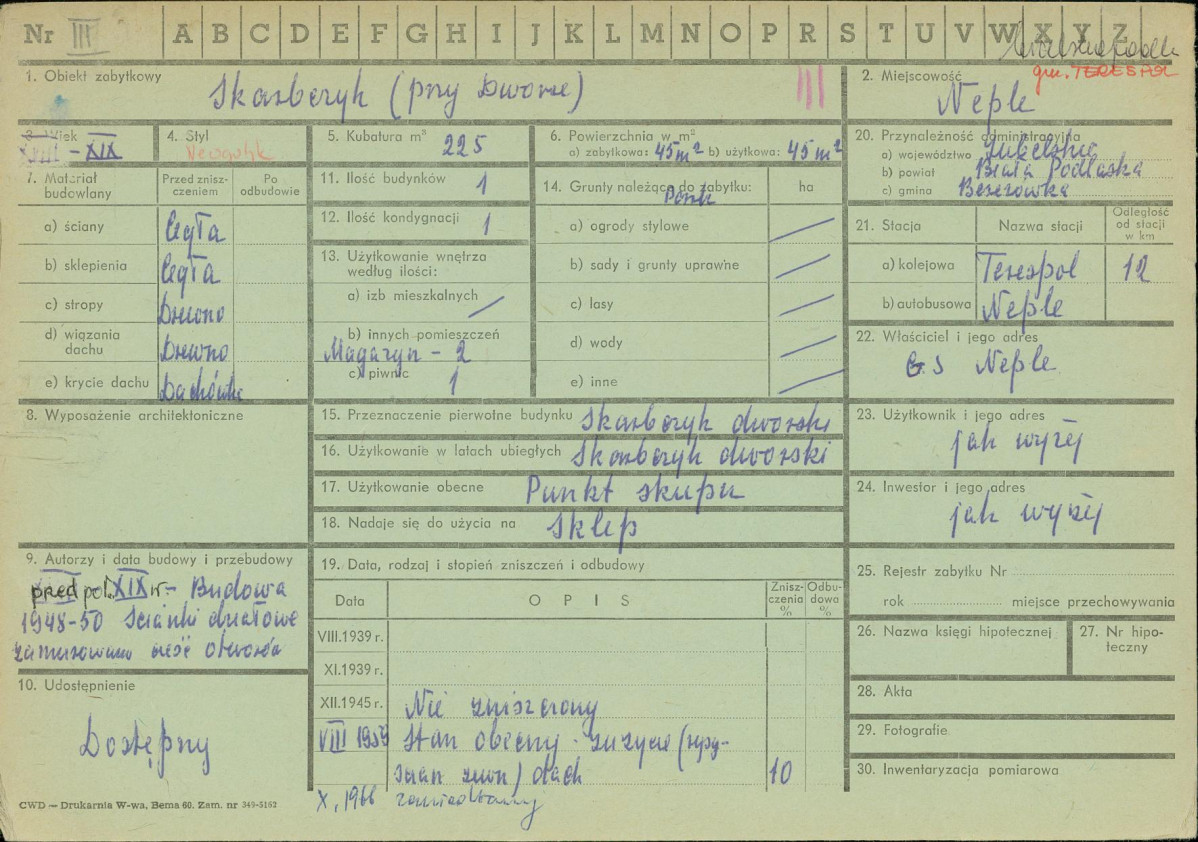 Nr III A B C D E F G H I J K L M N O P R S T U V W X Y Z
gm. TERESPOL
1. Obiekt zabytkowy
Skarbczyk (przy Dworze)
III
2. Miejscowość
Neple
3. Wiek
XVIII - XIX
4. Styl
Neogotyk
5. Kubatura m³ 225
6. Powierzchnia w m²
a) zabytkowa: 45 m² b) użytkowa: 45 m²
20. Przynależność administracyjna
a) województwo Lubelskie
b) powiat Biała Podlaska
c) gmina Berezówka
7. Materiał budowlany
Przed zniszczeniem
Po odbudowie
a) ściany Cegła
b) sklepienia Cegła
c) stropy Drewno
d) wiązania dachu Drewno
e) krycie dachu Dachówka
11. Ilość budynków 1
12. Ilość kondygnacji 1
13. Użytkowanie wnętrza
według ilości:
a) izb mieszkalnych /
b) innych pomieszczeń
Magazyn - 2
c) piwnic 1
14. Grunty należące do zabytku: ha
Park
a) ogrody stylowe /
b) sady i grunty uprawne /
c) lasy /
d) wody /
e) inne /
21. Stacja
Nazwa stacji
Odległość od stacji w km
a) kolejowa Terespol 12
b) autobusowa Neple
22. Właściciel i jego adres
GS Neple
8. Wyposażenie architektoniczne
15. Przeznaczenie pierwotne budynku Skarbczyk dworski
16. Użytkowanie w latach ubiegłych Skarbczyk dworski
17. Użytkowanie obecne Punkt skupu
18. Nadaje się do użycia na Sklep
23. Użytkownik i jego adres
jak wyżej
24. Inwestor i jego adres
jak wyżej
9. Autorzy i data budowy i przebudowy
przed poł. XIX w - Budowa
1948-50 Ścianki działowe
zamurowano część otworów
10. Udostępnienie
Dostępny
19. Data, rodzaj i stopień zniszczeń i odbudowy
Data
OPIS
Zniszczenia %
Odbudowa %
VIII.1939 r.
XI.1939 r.
XII.1945 r. Nie zniszczony
VIII 1959 Stan obecny - zużycie (rysy-
ścian zewn) dach 10
X, 1966 zaniedbany
25. Rejestr zabytku Nr
rok miejsce przechowywania
26. Nazwa księgi hipotecznej
27. Nr hipoteczny
28. Akta
29. Fotografie
30. Inwentaryzacja pomiarowa
CWD — Drukarnia W-wa, Bema 60. Zam. nr 349-5152